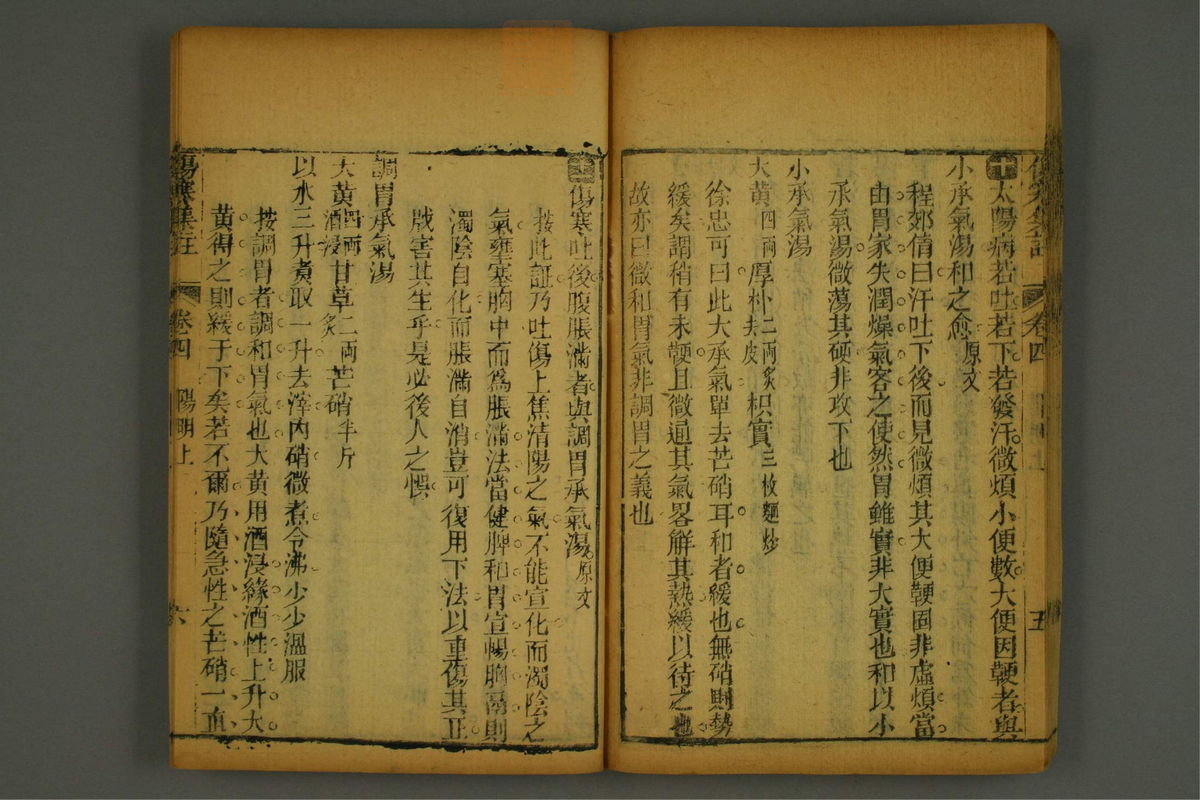 傷寒集註 卷四 五
十 太陽病若吐若下若發汗微煩小便數大便因鞕者與
小承氣湯和之愈 原文
程郊倩曰汗吐下後而見微煩其大便鞕固非虛煩當
由胃家失潤燥氣客之使然胃雖實非大實也和以小
承氣湯微蕩其硬非攻下也
小承氣湯
大黃四兩 厚朴二兩炙去皮 枳實三枚麵炒
徐忠可曰此大承氣單去芒硝耳和者緩也無硝則勢
緩矣調稍有未鞕且微通其氣畧解其熱緩以待之也
故亦曰微和胃氣非調胃之義也
傷寒吐後腹脹滿者與調胃承氣湯 原文
按此証乃吐傷上焦清陽之氣不能宣化而濁陰之
氣壅塞胸中而為脹滿法當健脾和胃宣暢胸鬲則
濁陰自化而脹滿自消豈可復用下法以重傷其正
戕害其生乎是必後人之悞
調胃承氣湯
大黃四兩酒浸 甘草二兩炙 芒硝半斤
以水三升煑取一升去滓內硝微煮令沸少少溫服
按調胃者調和胃氣也大黃用酒浸緣酒性上升大
黃得之則緩于下矣若不爾乃隨急性之芒硝一直
傷寒集註 卷四 陽明上 六